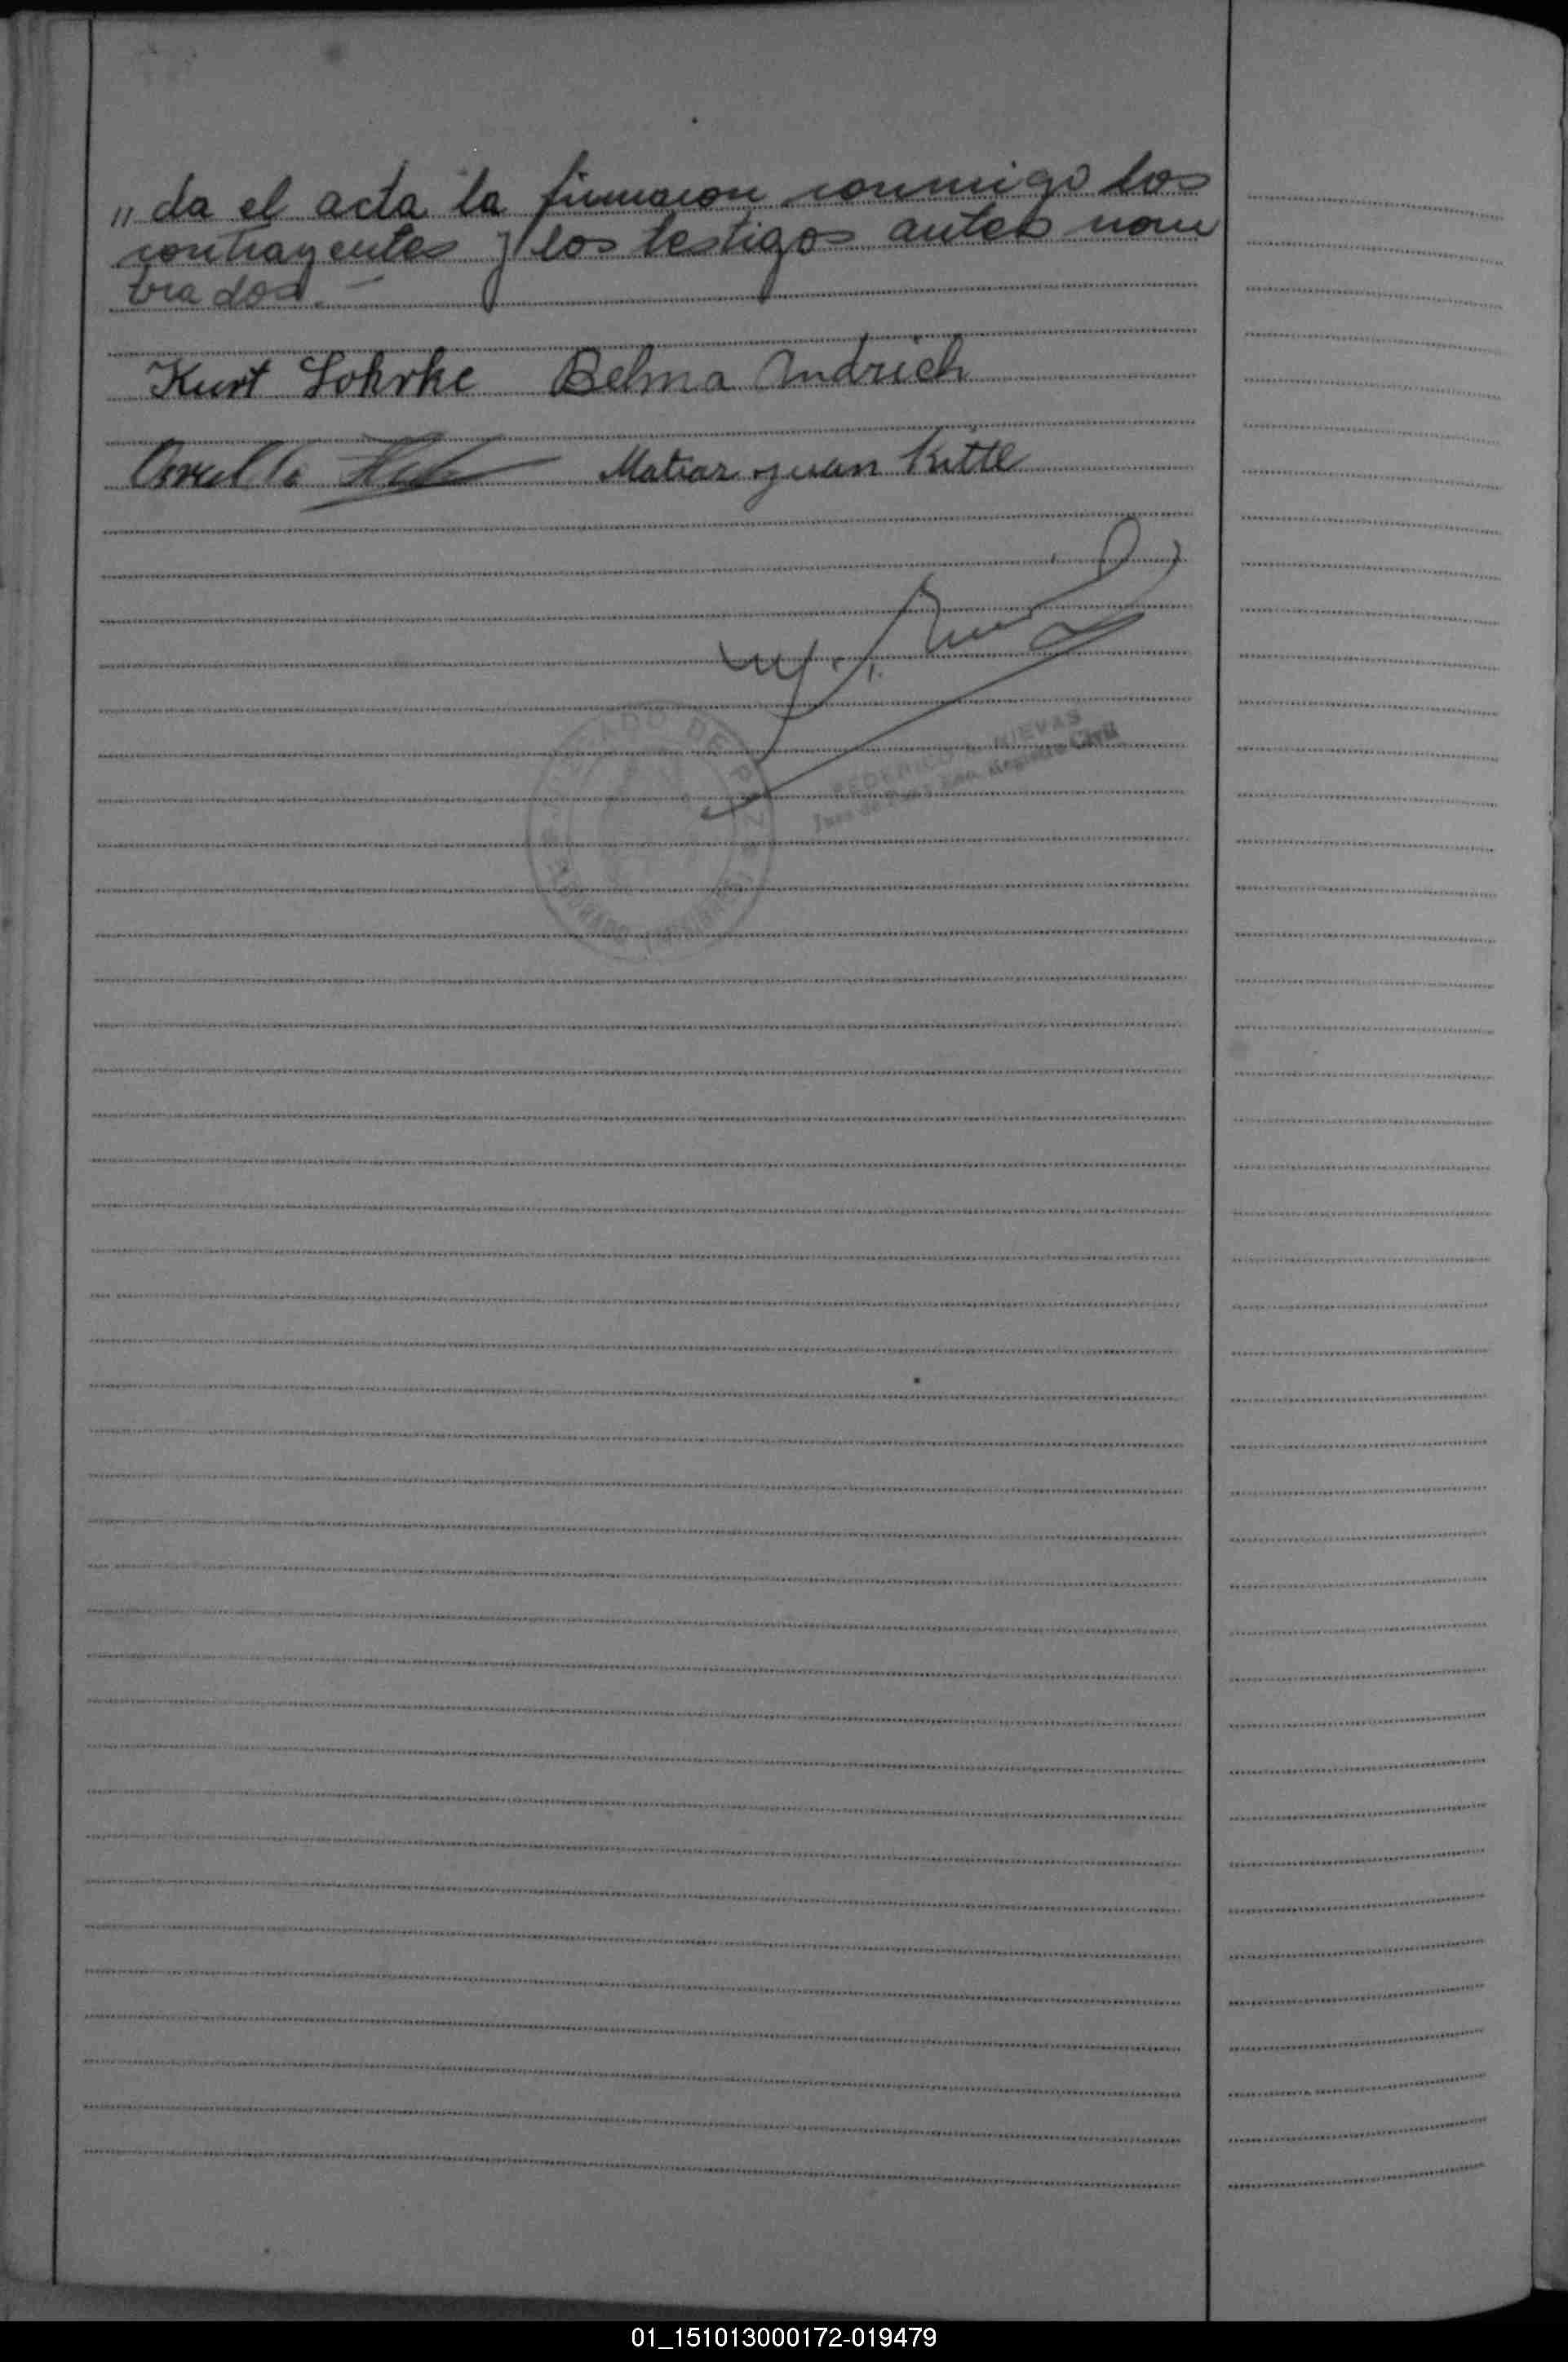 " da el acta la firmaron conmigo los
contrayentes y los testigos antes nom
brados.-
Kurt Lohrke Belma Indrich
Matias Juan Kittl
JUZGADO DE PAZ
FEDERICO NIEVAS
Juez de Paz y Registro Civil
01_151013000172-019479